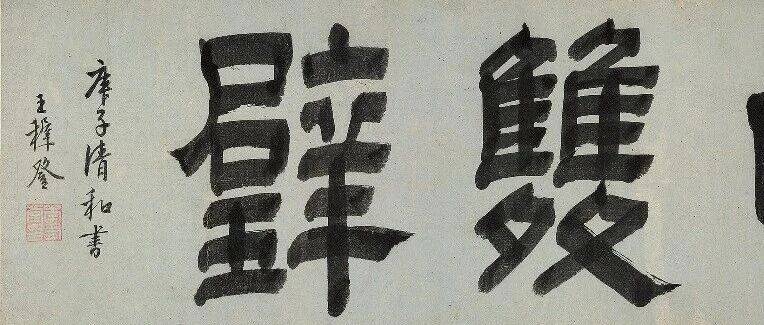 雙璧
庚子清和書
王穉登